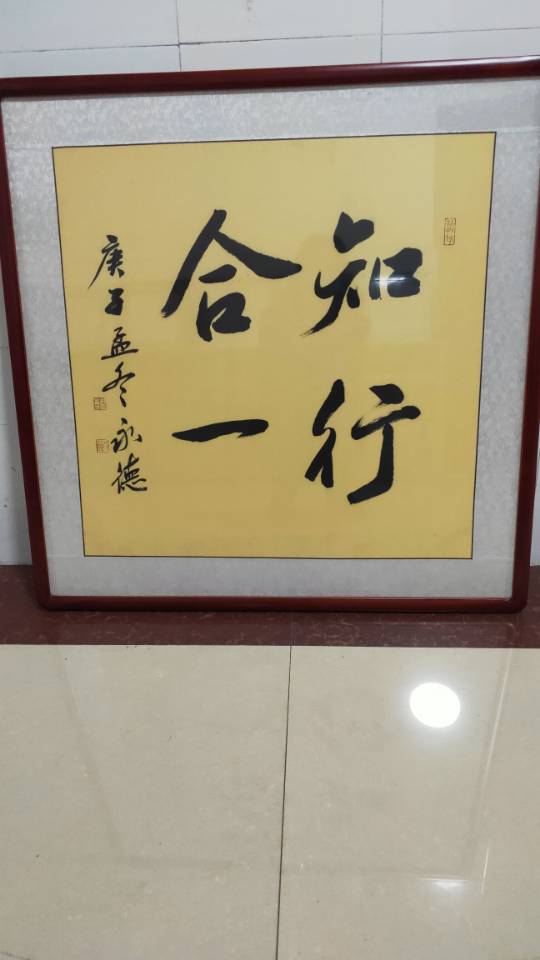 知行
合一
庚子孟冬永德